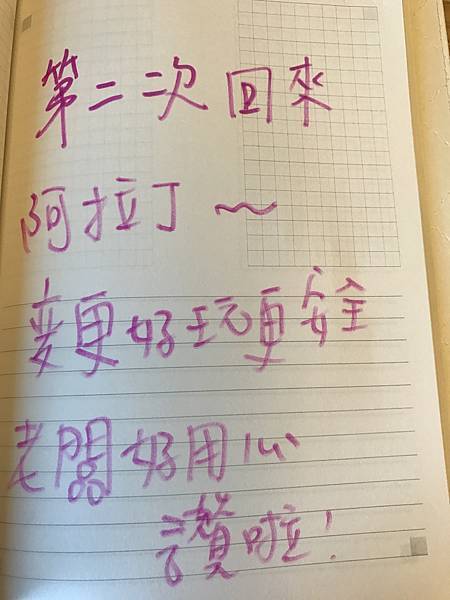 第二次回來
阿拉丁~
變更好玩更安全
老闆好用心
讚啦!